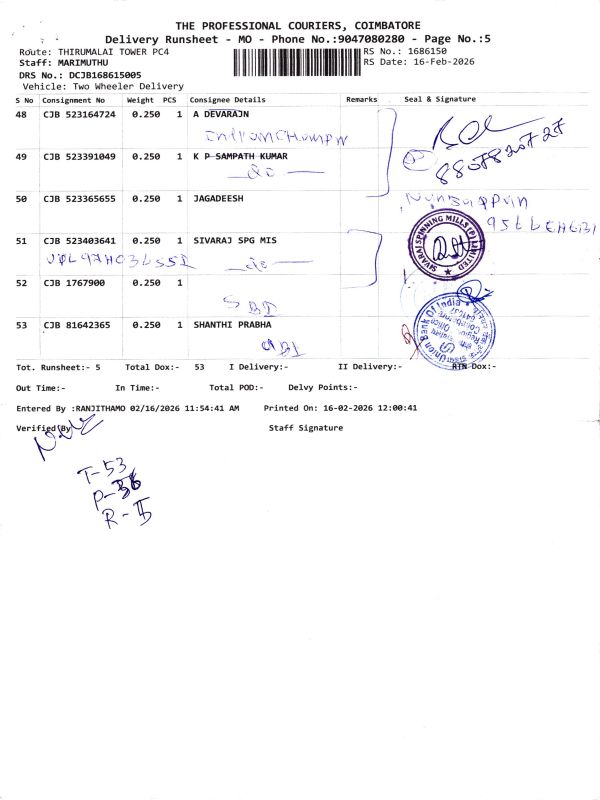 THE PROFESSIONAL COURIERS, COIMBATORE
Delivery Runsheet - MO - Phone No.:9047080280 - Page No.:5
Route: THIRUMALAI TOWER PC4 RS No.: 1686150
Staff: MARIMUTHU RS Date: 16-Feb-2026
DRS No.: DCJB168615005
Vehicle: Two Wheeler Delivery
S No Consignment No Weight PCS Consignee Details Remarks Seal & Signature
48 CJB 523164724 0.250 1 A DEVARAJN
8807820727
49 CJB 523391049 0.250 1 K P SAMPATH KUMAR
do
50 CJB 523365655 0.250 1 JAGADEESH
51 CJB 523403641 0.250 1 SIVARAJ SPG MIS
do
SIVARAJ SPINNING MILLS (P) LIMITED
52 CJB 1767900 0.250 1
SBI
53 CJB 81642365 0.250 1 SHANTHI PRABHA
UBI
Union Bank Of India
Tot. Runsheet:- 5 Total Dox:- 53 I Delivery:- II Delivery:- RTN Dox:-
Out Time:- In Time:- Total POD:- Delvy Points:-
Entered By :RANJITHAMO 02/16/2026 11:54:41 AM Printed On: 16-02-2026 12:00:41
Verified By Staff Signature
T-53
P-
R-